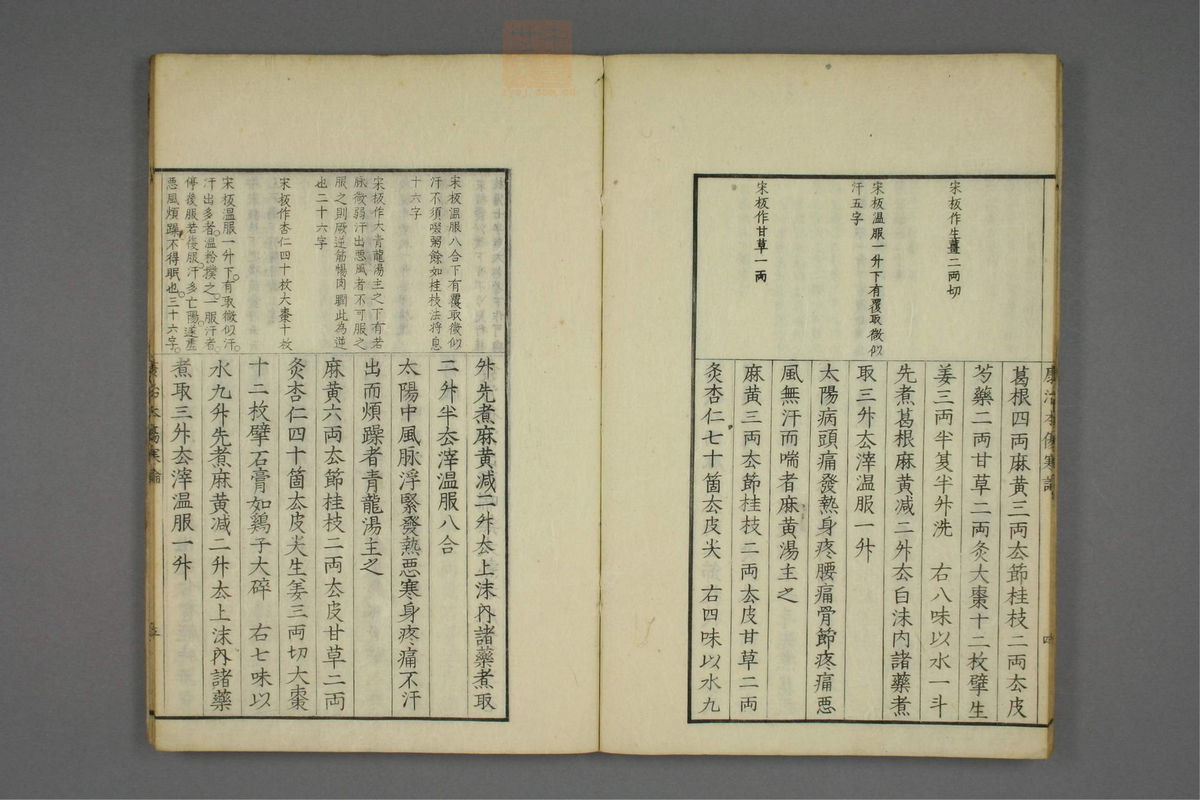 宋板作生薑二両切
宋板温服一升下有覆取微似
汗五字
宋板作甘草一両
葛根四両麻黄三両厺節桂枝二両厺皮
芍藥二両甘草二両炙大棗十二枚擘生
姜三両半夏半升洗 右八味以水一斗
先煮葛根麻黄减二升厺白沫内諸藥煮
取三升厺滓温服一升
太陽病頭痛發熱身疼腰痛骨節疼痛悪
風無汗而喘者麻黄湯主之
麻黄三両厺節桂枝二両厺皮甘草二両
炙杏仁七十箇厺皮尖 右四味以水九
宋板温服八合下有覆取微似
汗不須啜粥餘如桂枝法将息
十六字
宋板作大青龍湯主之下有若
脉微弱汗出悪風者不可服之
服之則厥逆筋惕肉瞤此為逆
也二十六字
宋板作杏仁四十枚大棗十枚
宋板温服一升下有取微似汗
汗出多者温粉撲之一服汗者
停後服若復服汗多亡陽遂虚
悪風煩躁不得眠也三十六字
升先煮麻黄减二升厺上沫内諸藥煮取
二升半厺滓温服八合
太陽中風脉浮緊發熱悪寒身疼痛不汗
出而煩躁者青龍湯主之
麻黄六両厺節桂枝二両厺皮甘草二両
炙杏仁四十箇厺皮尖生姜三両切大棗
十二枚擘石膏如鶏子大碎 右七味以
水九升先煮麻黄减二升厺上沫内諸藥
煮取三升厺滓温服一升